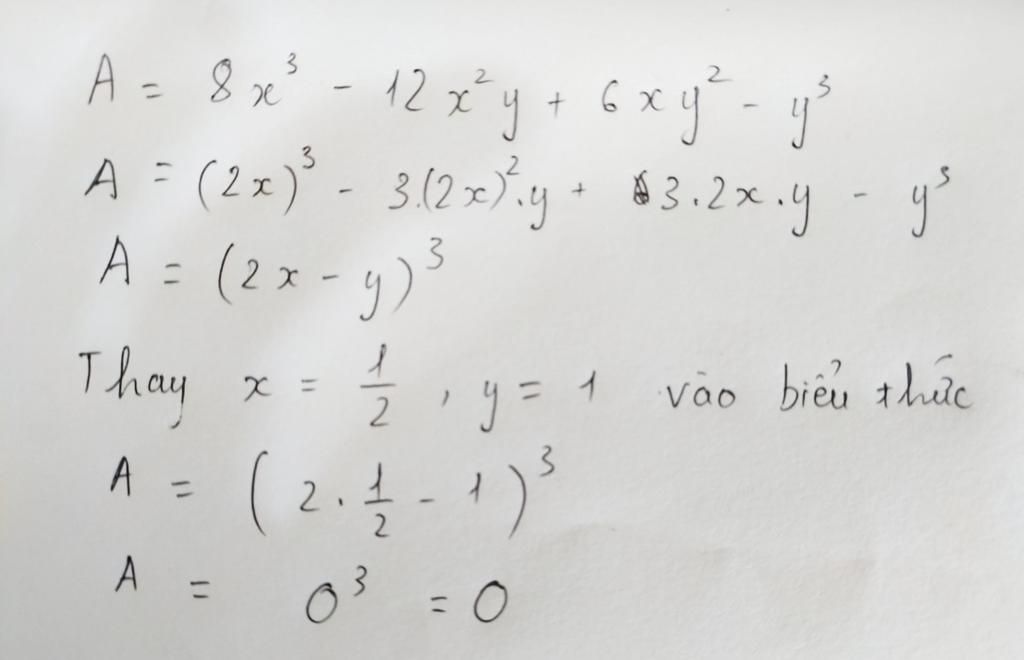 A = 8x³ - 12x²y + 6xy² - y³
A = (2x)³ - 3.(2x)².y + 3.2x.y - y³
A = (2x - y)³
Thay x = 1/2 , y = 1 vào biểu thức
A = (2. 1/2 - 1)³
A = 0³ = 0